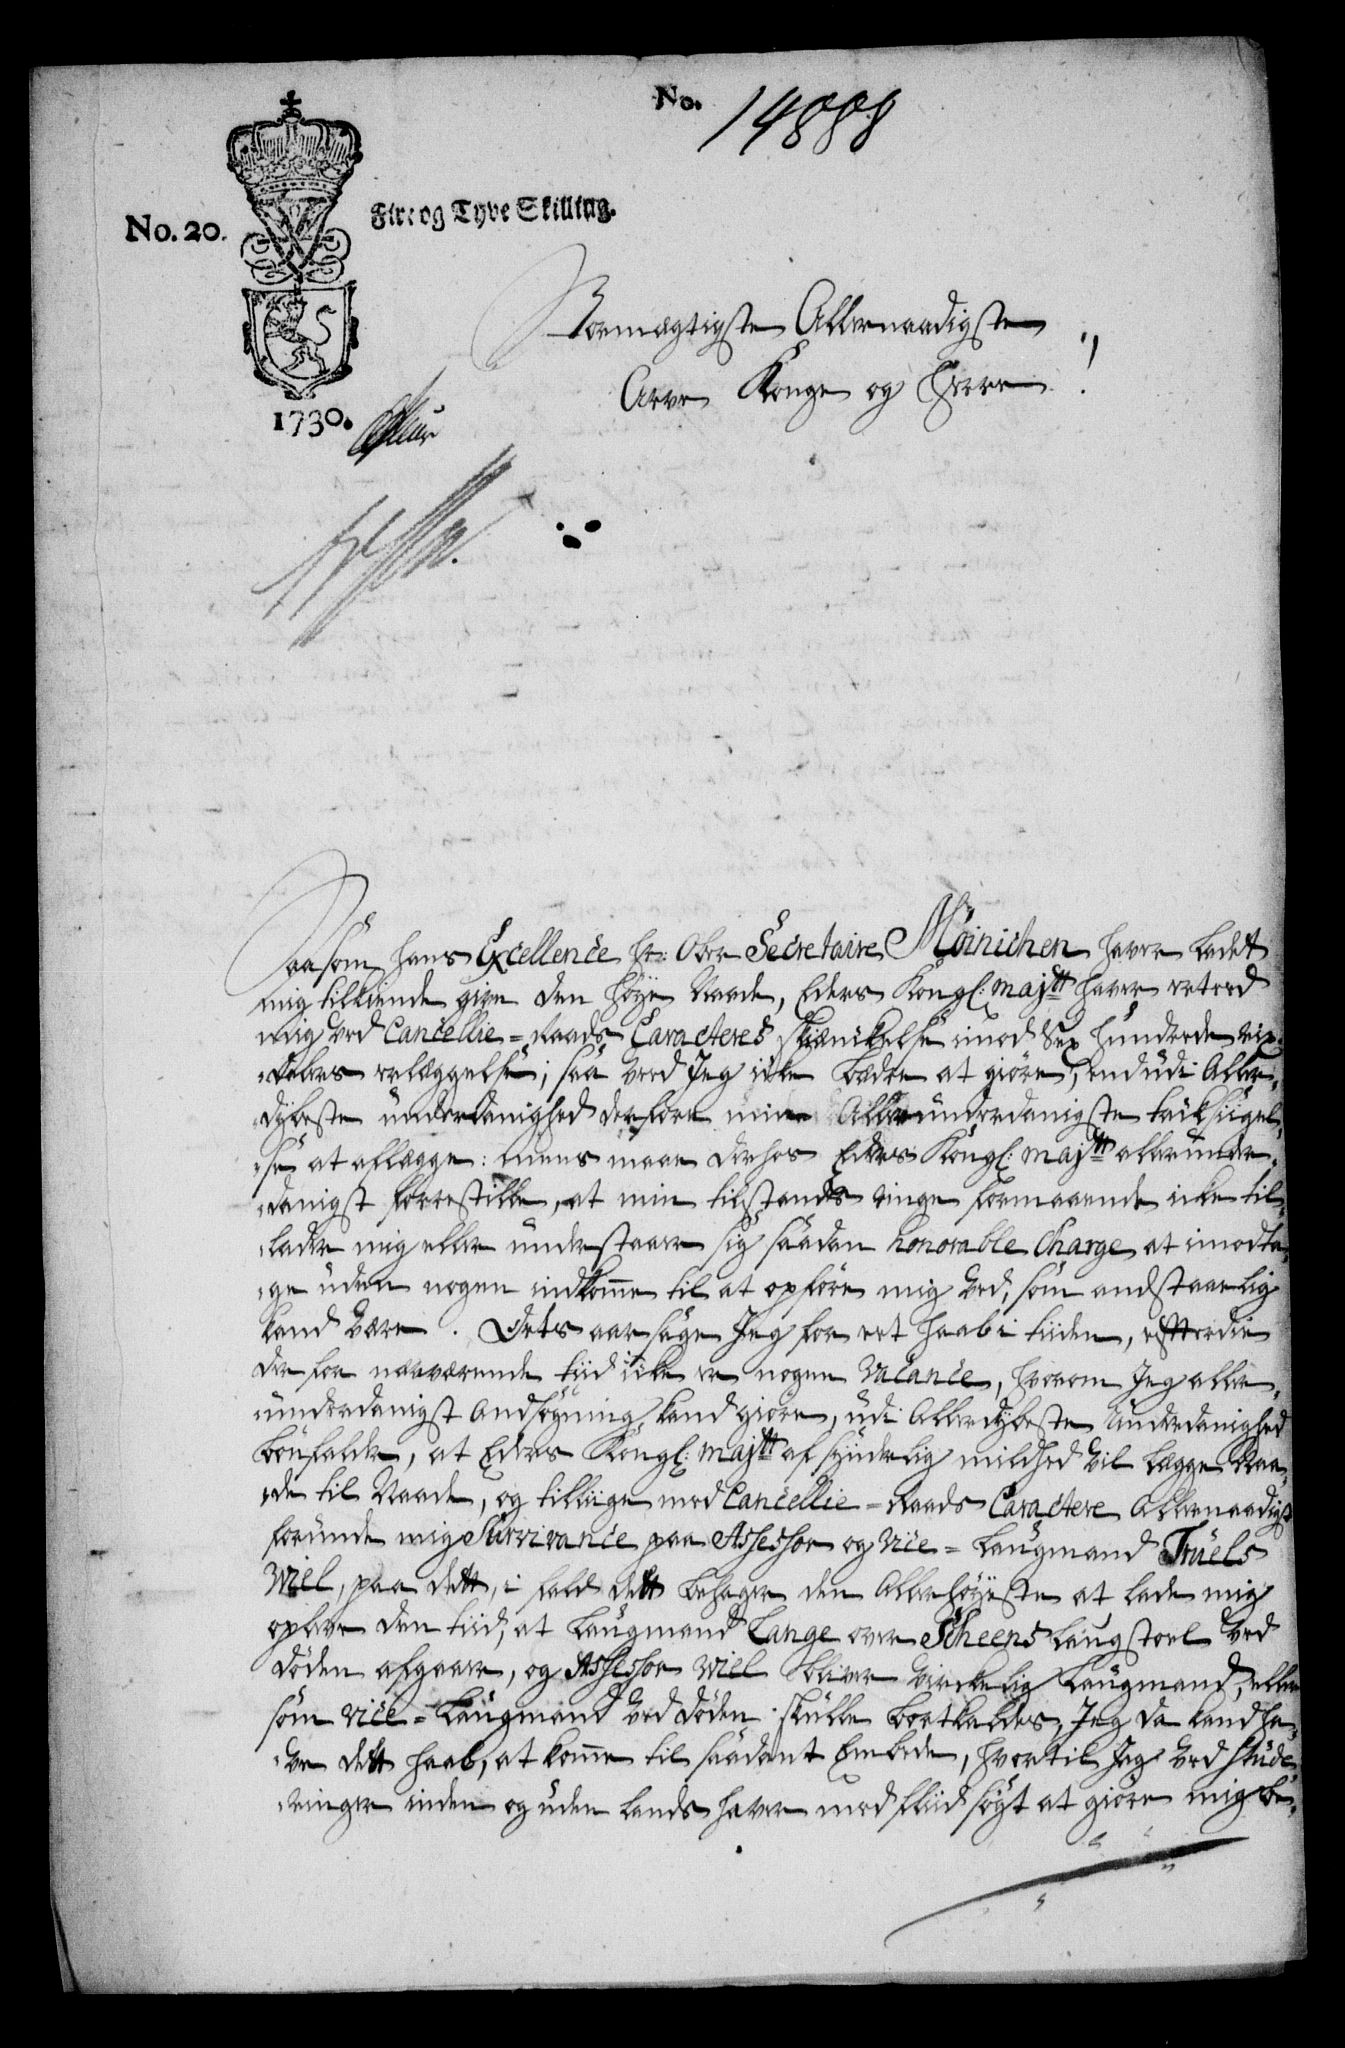 No. 14888
No. 20. Fire og Tyve Skilling.
1730.
Stormægtigste Allernaadigste
Arve Konge og Herre!
Saasom hans Excellence Hr: Ober Secretaire Möinichen haver ladet
mig tilkiende give den høye Naade, Eders Kongl: Majtt haver betroed
mig ved Cancellie=Raads Caracteres skienckelse imod Sex hundrede rix,,
,,dalers erleggelse; saa veed Jeg icke bædre at giöre, end udi Aller,,
dybeste underdanighed derfore min Allerunderdanigste taksigel,,
,,se at aflægge: mens maae derhos Eders Kongl: Majtt allerunder,,
,,danigst forrestille, at min tilstands ringe formaaende icke til,,
,,lader mig eller understaaer sig saadan honorable Charge at imodta,,
,,ge uden nogen indkomme til at opföre mig ved, som anstaaelig
kand være. Dets aarsage Jeg for eet haab i tiiden, efftterdi
der for nærværende tiid icke er nogen Vacance, hvorom Jeg aller,,
,,underdanigst Ansögning kand giöre, udi Allerdybeste Underdanighed
bönfalder, at Eders Kongl: Majtt af synderlig mildhed vil lægge Naa,,
,,de til Naade, og tilliige med Cancellie=Raads Caractere Allernaadigst
forunde mig Survivance paa Assessor og Vice=Laugmand Truels
Wiel, paa dett, i fald dett behager den Allerhöyeste at lade mig
opleve den tiid, at Laugmand Lange over Scheens Laugstoel ved
döden afgaaer, og Assessor Wiel bliver virckelig Laugmand, eller
som Vice=Laugmand ved döden skulle bortkaldes, Jeg da kand ha,,
,,ve dett haab, at komme til saadant Embede, hvortil Jeg ved stude,,
,,ringer inden og uden lands haver med fliid sögt at giöre mig be,,